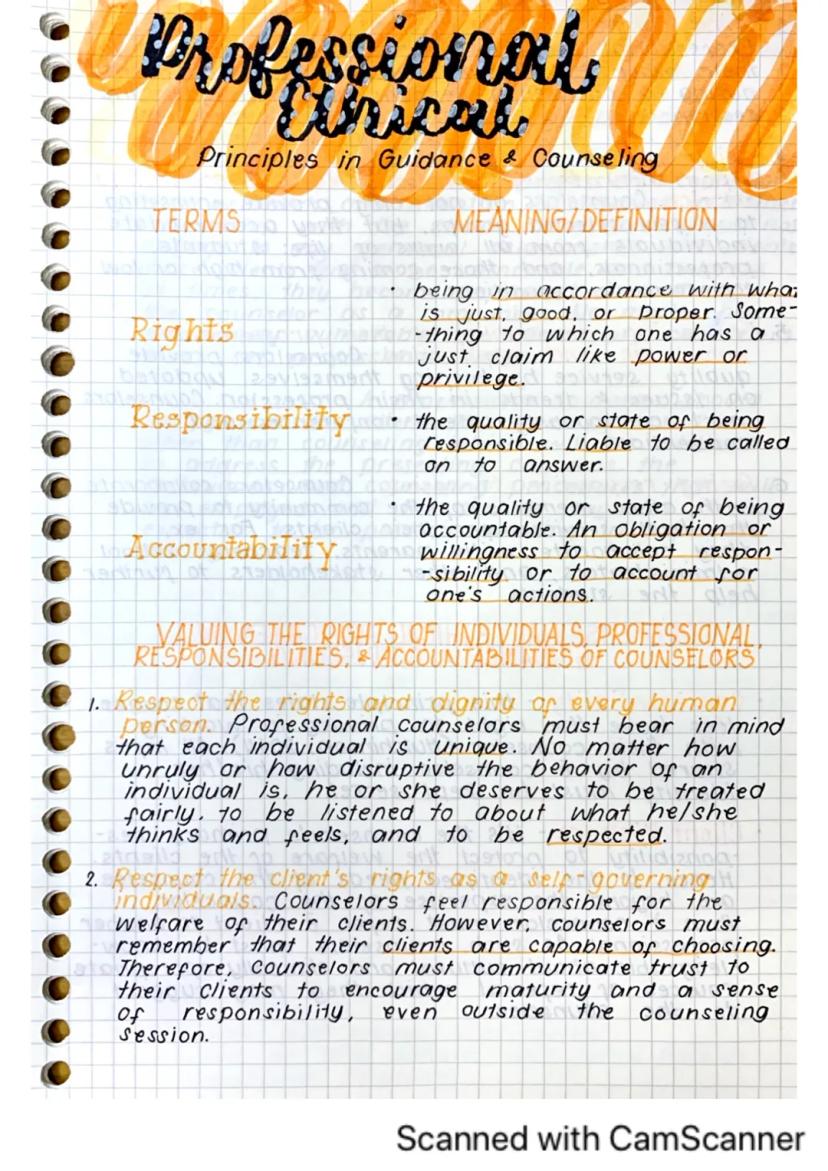 Professional
Ethical
Principles in Guidance & Counseling
TERMS MEANING/DEFINITION
Rights
• being in accordance with what
is just, good, or proper. Some-
-thing to which one has a
just claim like power or
privilege.
Responsibility
• the quality or state of being
responsible. Liable to be called
on to answer.
Accountability
• the quality or state of being
accountable. An obligation or
willingness to accept respon-
-sibility or to account for
one's actions.
VALUING THE RIGHTS OF INDIVIDUALS, PROFESSIONAL,
RESPONSIBILITIES, & ACCOUNTABILITIES OF COUNSELORS
1. Respect the rights and dignity of every human
person. Professional counselors must bear in mind
that each individual is unique. No matter how
unruly or how disruptive the behavior of an
individual is, he or she deserves to be treated
fairly, to be listened to about what he/she
thinks and feels, and to be respected.
2. Respect the client's rights as a self-governing
individuals. Counselors feel responsible for the
welfare of their clients. However, counselors must
remember that their clients are capable of choosing.
Therefore, counselors must communicate trust to
their clients to encourage maturity and a sense
of responsibility, even outside the counseling
session.
Scanned with CamScanner